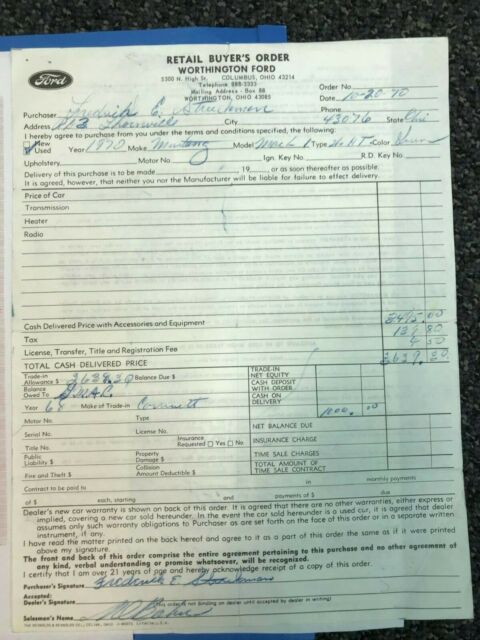 RETAIL BUYER'S ORDER
WORTHINGTON FORD
5300 N. High St. COLUMBUS, OHIO 43214
Telephone 888-3333
Mailing Address - Box 88
WORTHINGTON, OHIO 43085
Ford
Order No.
Date 10-20-70
Purchaser Fredrick E.
Phone
Address City 43076 State Ohio
I hereby agree to purchase from you under the terms and conditions specified, the following:
New
Used Year 1970 Make Mustang Model Mach 1 Type Color
Upholstery Motor No. Ign. Key No. R.D. Key No.
Delivery of this purchase is to be made 19 or as soon thereafter as possible.
It is agreed, however, that neither you nor the Manufacturer will be liable for failure to effect delivery.
Price of Car
Transmission
Heater
Radio
Cash Delivered Price with Accessories and Equipment 3495.00
Tax 139 80
License, Transfer, Title and Registration Fee 4 50
TOTAL CASH DELIVERED PRICE 3639.30
Trade-in Allowance $ 2639.30 Balance Due $
TRADE-IN NET EQUITY
Balance Owed To G.M.A.C.
CASH DEPOSIT WITH ORDER
Year 68 Make of Trade-in
CASH ON DELIVERY 1000.00
Motor No. Type
NET BALANCE DUE
Serial No. License No.
Title No. Insurance Requested Yes No
INSURANCE CHARGE
Public Liability $ Property Damage $
TIME SALE CHARGES
Fire and Theft $ Collision Amount Deductible $
TOTAL AMOUNT OF TIME SALE CONTRACT
Contract to be paid to in monthly payments
of $ each, starting and payments of $ due
Dealer's new car warranty is shown on back of this order. It is agreed that there are no other warranties, either express or
implied, covering a new car sold hereunder. In the event the car sold hereunder is a used car, it is agreed that dealer
assumes only such warranty obligations to Purchaser as are set forth on the face of this order or in a separate written
instrument, if any.
I have read the matter printed on the back hereof and agree to it as a part of this order the same as if it were printed
above my signature.
The front and back of this order comprise the entire agreement pertaining to this purchase and no other agreement of
any kind, verbal understanding or promise whatsoever, will be recognized.
I certify that I am over 21 years of age and hereby acknowledge receipt of a copy of this order.
Purchaser's Signature Frederick E
Accepted:
Dealer's Signature (This order is not binding on dealer until accepted by dealer in writing)
Salesman's Name